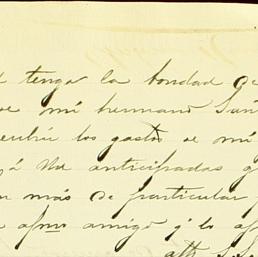 tenga la bondad de
de mi hermano
cubrir los gastos de mi
á Vd anticipadas
más de particular
afmo amigo y lo
att S.S.